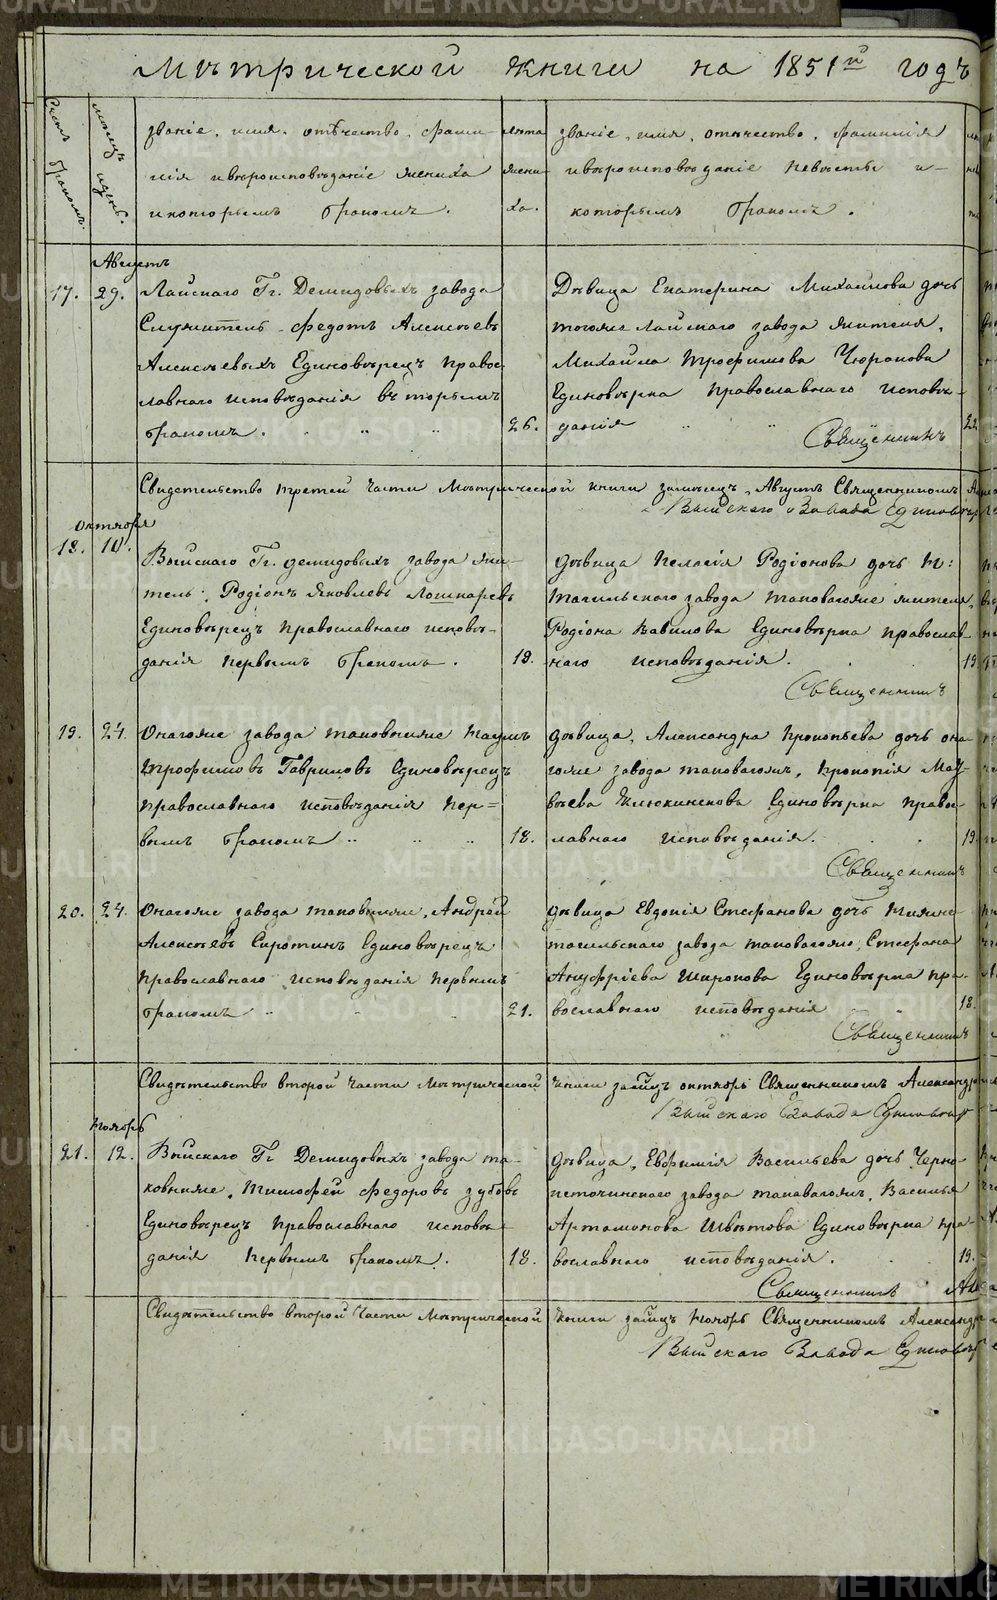 Метрической книги на 1851й годъ
счетъ браковъ.
месяцъ и день.
званіе, имя, отчество, фами-
лія и вероисповеданіе жениха
и которымъ бракомъ.
лета
жени-
ха.
званіе, имя, отчество, фамилія
и вероисповеданіе невесты и
которымъ бракомъ.
Августъ
17. 29. Лайскаго Гг. Демидовыхъ завода
Служитель Федотъ Алексеевъ
Алексеевыхъ Единоверецъ право-
славнаго исповеданія вторымъ
бракомъ. 26.
Девица Екатерина Михайлова дочь
тогоже Лайскаго завода жителя,
Михаила Трофимова Чюракова
Единоверка православнаго испове-
данія 22
Священникъ
Свидетельство третей части Метрической книги замесецъ Августъ Священникомъ
Выйскаго Завода Единовер
Октября
18. 10. Выйскаго Гг. демидовыхъ завода жи-
тель: Родіонъ Яковлевъ Лошкаревъ
Единоверецъ православнаго испове-
данія первымъ бракомъ. 19.
девица Пелагія Родіонова дочь Н:
тагильскаго завода таковагоже жителя,
Родіона Вавилова Единоверка православ-
наго исповеданія. 19
Священникъ
19. 24. Онагоже завода таковыиже Наумъ
Трофимовъ Гавриловъ Единоверецъ
православнаго исповеданія пер=
вымъ бракомъ 18.
девица, Александра Прокопьева дочь она-
гоже завода таковагожъ, Прокопія Мат-
веева Клюкинскова Единоверка право-
славнаго исповеданія. 19.
Священникъ
20. 24. Онагоже завода таковыиже, Андрей
Алексеевъ Сиротинъ Единоверецъ
православнаго исповеданія первымъ
бракомъ 21.
девица Евдокія Стефанова дочь Нижне-
тагильскаго завода таковагожъ, Стефана
Ануфріева Широкова Единоверка пра-
вославнаго исповеданія 18.
Священникъ
Свидетельство второй части Метрической книги замцъ октябрь Священникомъ Александр
Выйскаго Завода Единовер
Ноябрь
21. 12. Выйскаго Гг Демидовыхъ завода та-
ковыиже, Тимофей Федоровъ Зубовъ
Единоверецъ православнаго испове-
данія первымъ бракомъ. 18.
девица, Евфимія Васильева дочь Черно-
источинскаго завода таковагожъ, Василья
Артамонова Шветова Единоверка пра-
вославнаго исповеданія. 19.
Священникъ
Свидетельство второй части Метрической книги замцъ Ноябрь Священникомъ Александр
Выйскаго Завода Единовер
METRIKI.GASO-URAL.RU